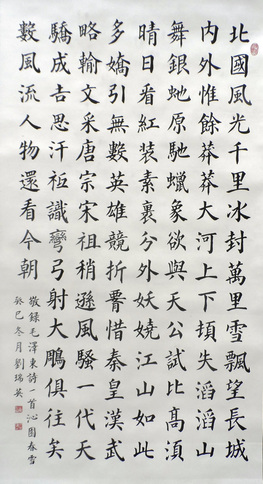 北國風光千里冰封萬里雪飄望長城
内外惟餘莽莽大河上下頓失滔滔山
舞銀虵原馳蠟象欲與天公試比高須
晴日看紅装素裹分外妖嬈江山如此
多嬌引無數英雄競折腰惜秦皇漢武
略輸文采唐宗宋祖稍遜風騷一代天
驕成吉思汗祗識彎弓射大鵰俱往矣
數風流人物還看今朝
敬錄毛澤東詩一首沁園春雪
癸巳冬月劉瑞英